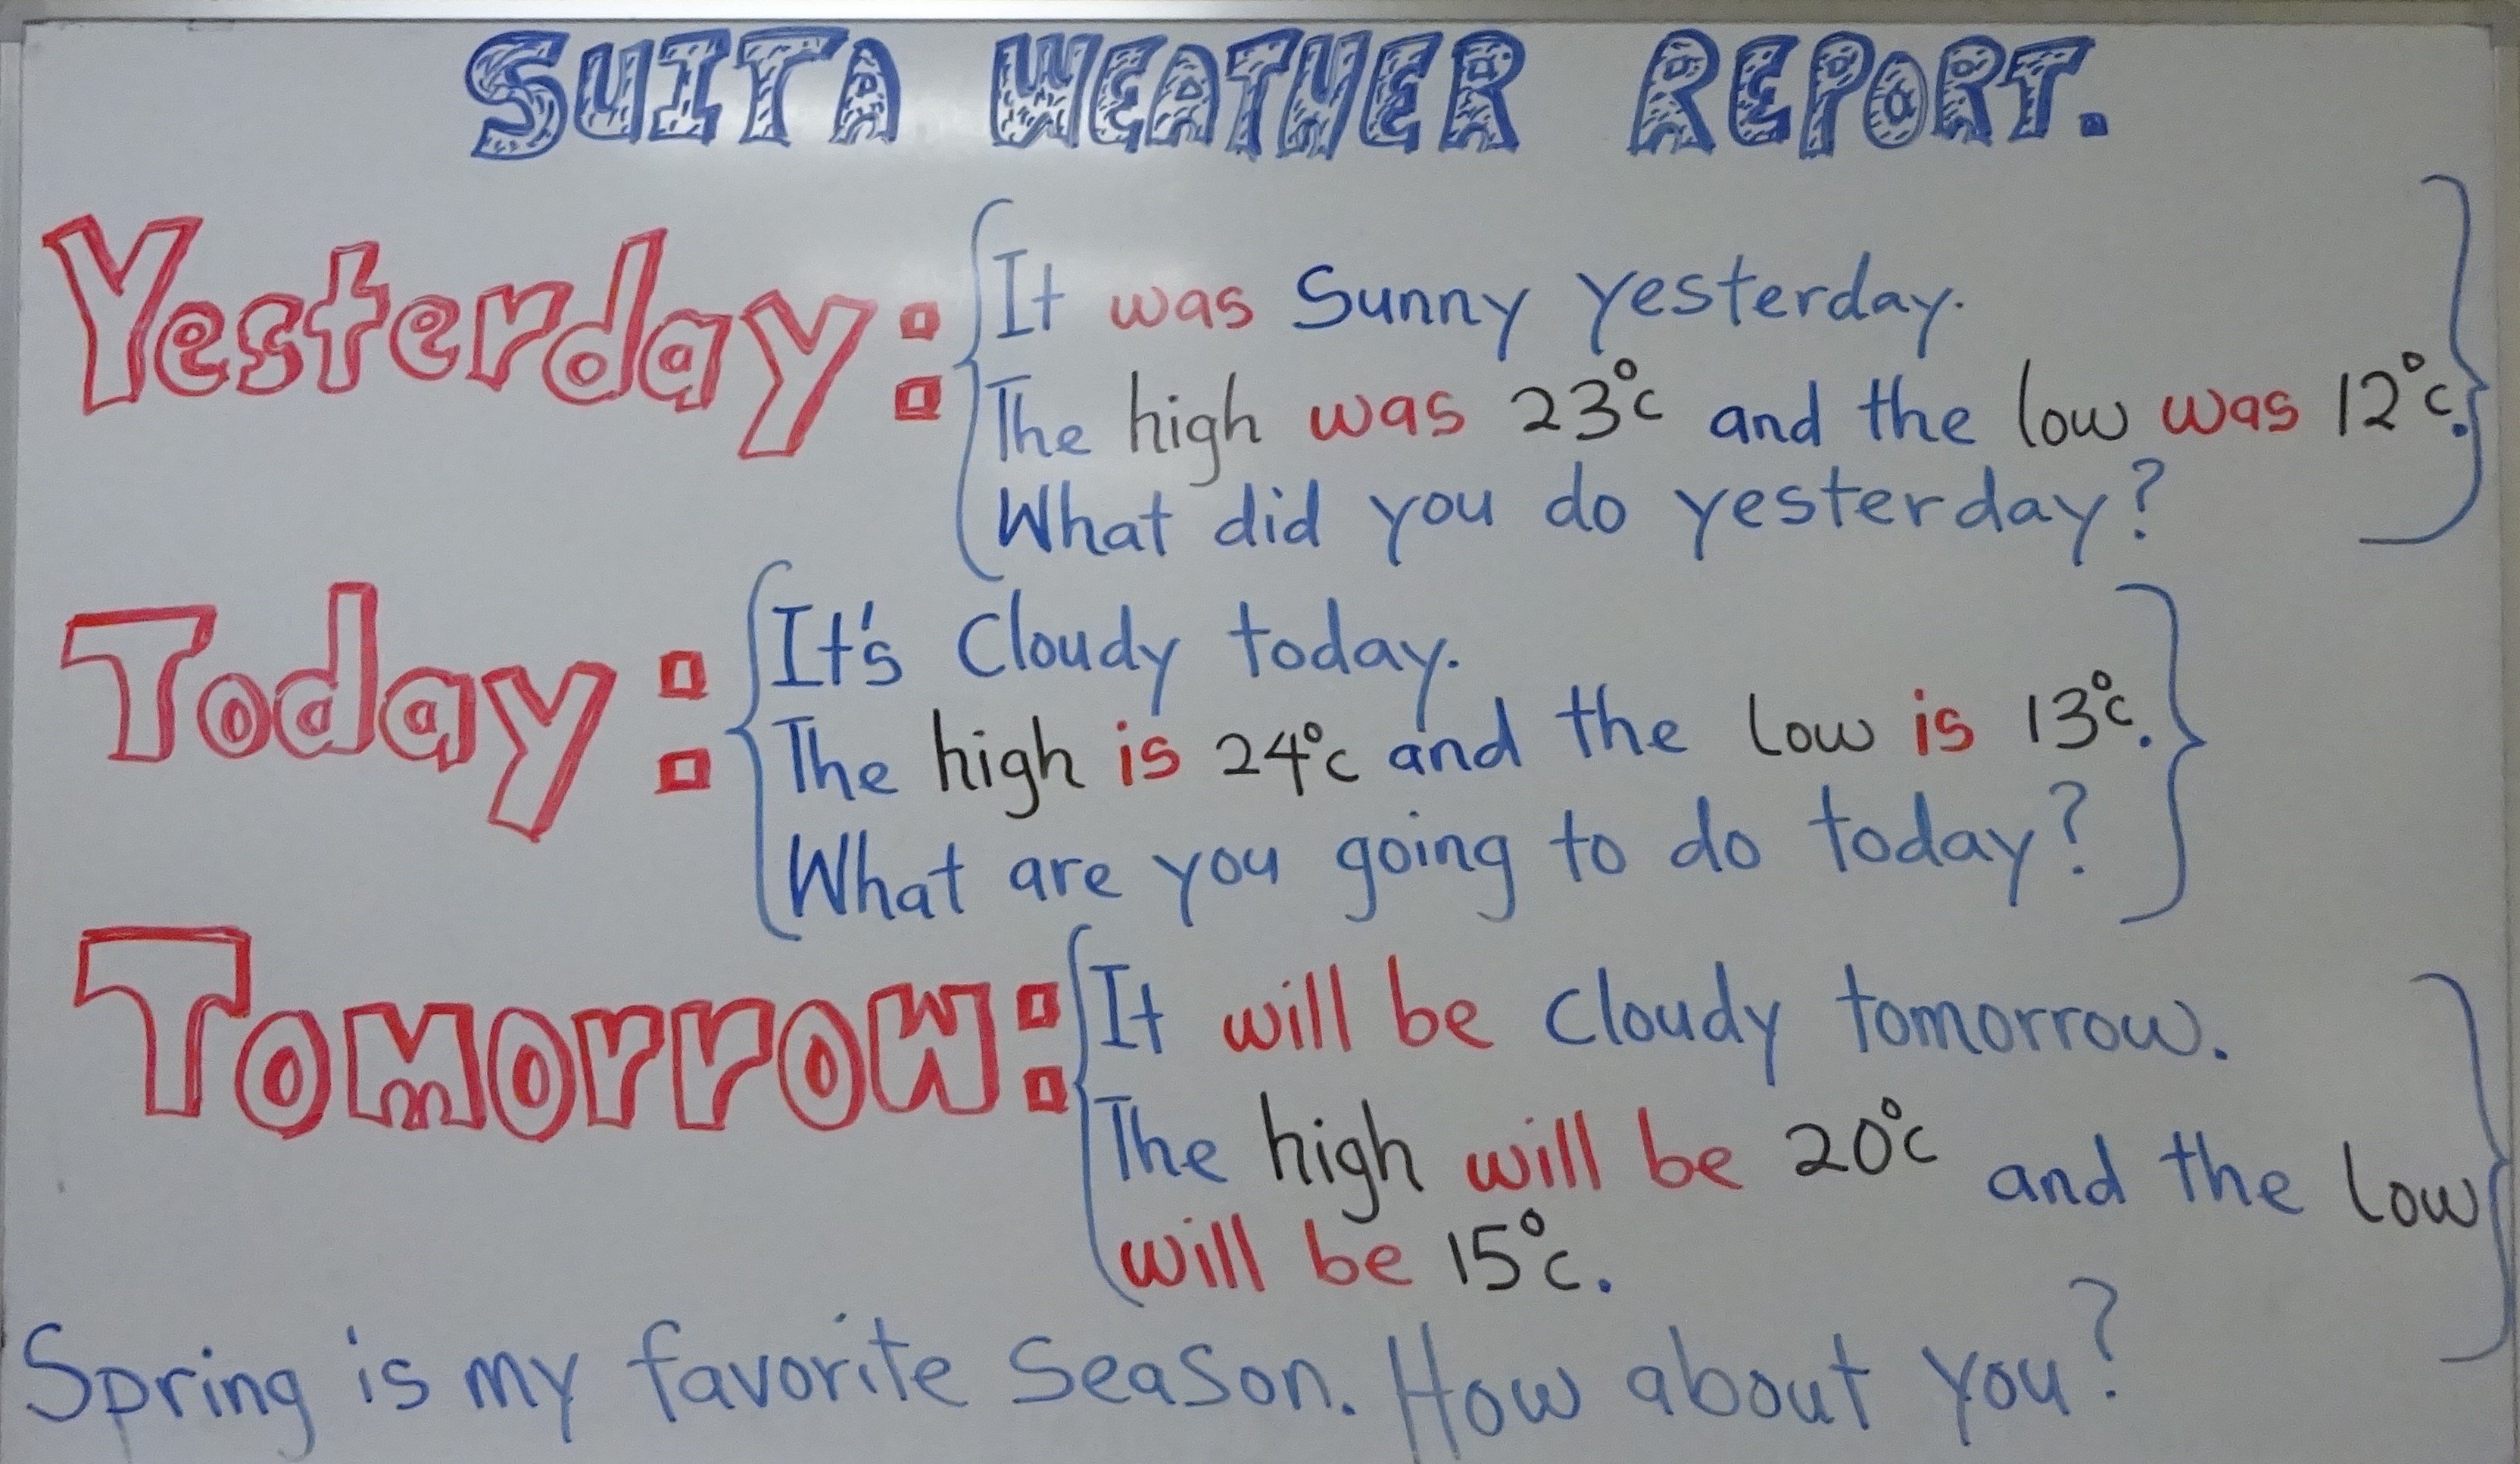 SUITA WEATHER REPORT.
Yesterday:
It was Sunny yesterday.
The high was 23°c and the low was 12°c.
What did you do yesterday?
Today:
It's Cloudy today.
The high is 24°c and the low is 13°c.
What are you going to do today?
Tomorrow:
It will be Cloudy tomorrow.
The high will be 20°c and the low
will be 15°c.
Spring is my favorite Season. How about you?